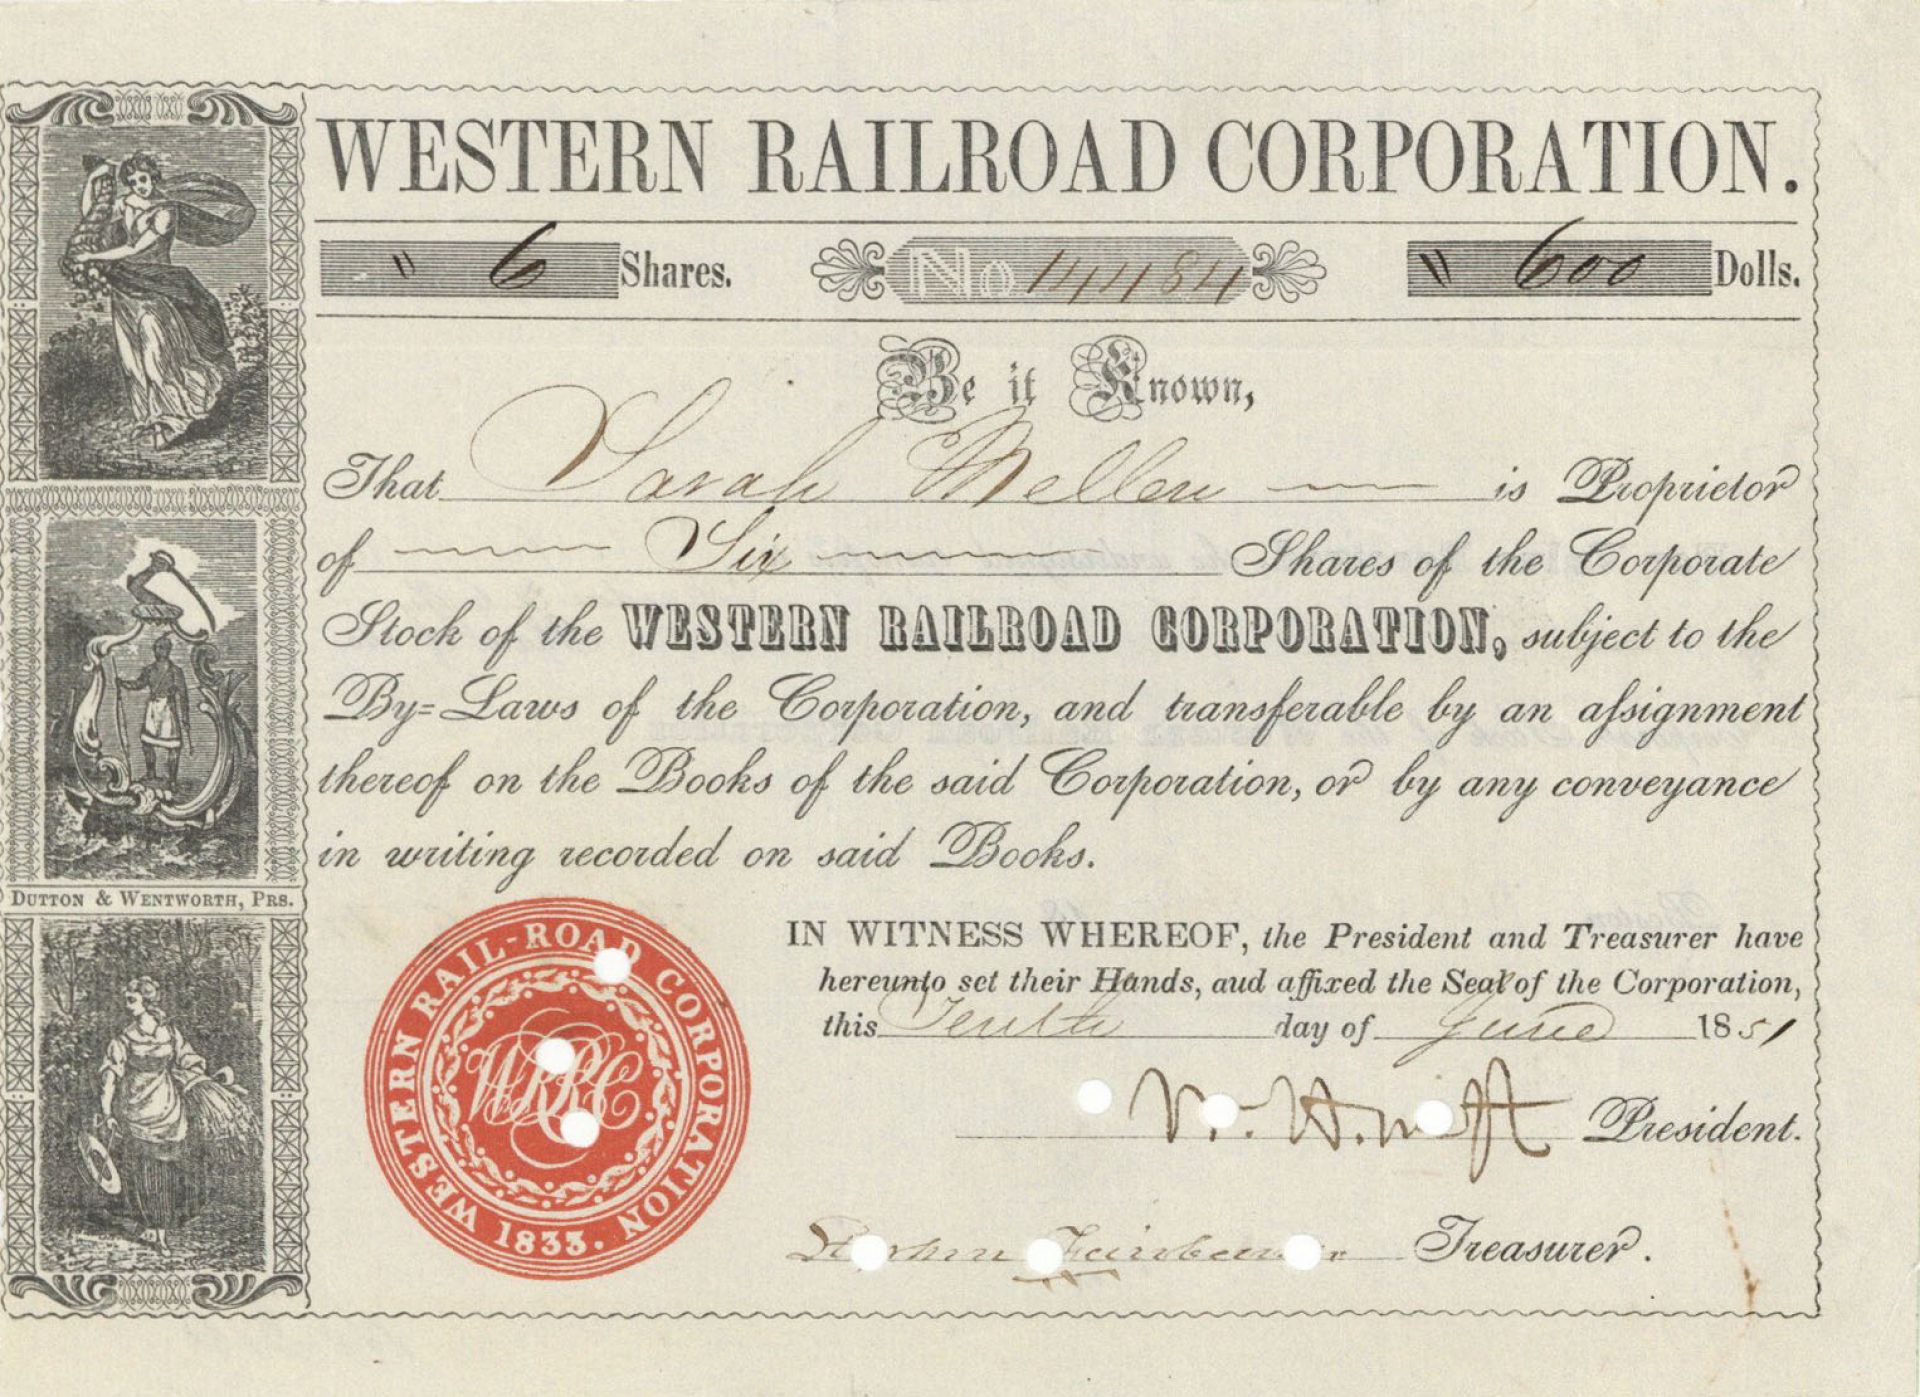 WESTERN RAILROAD CORPORATION.
" 6 Shares. No 14484 " 600 Dolls.
Be it Known,
That Sarah Mellen is Proprietor
of Six Shares of the Corporate
Stock of the WESTERN RAILROAD CORPORATION, subject to the
By=Laws of the Corporation, and transferable by an aſsignment
thereof on the Books of the said Corporation, or by any conveyance
in writing recorded on said Books.
DUTTON & WENTWORTH, PRS.
WESTERN RAIL-ROAD CORPORATION
WRRC
WESTERN 1833.
IN WITNESS WHEREOF, the President and Treasurer have
hereunto set their Hands, aud affixed the Seal of the Corporation,
this Tenth day of June 1851
President.
Treasurer.